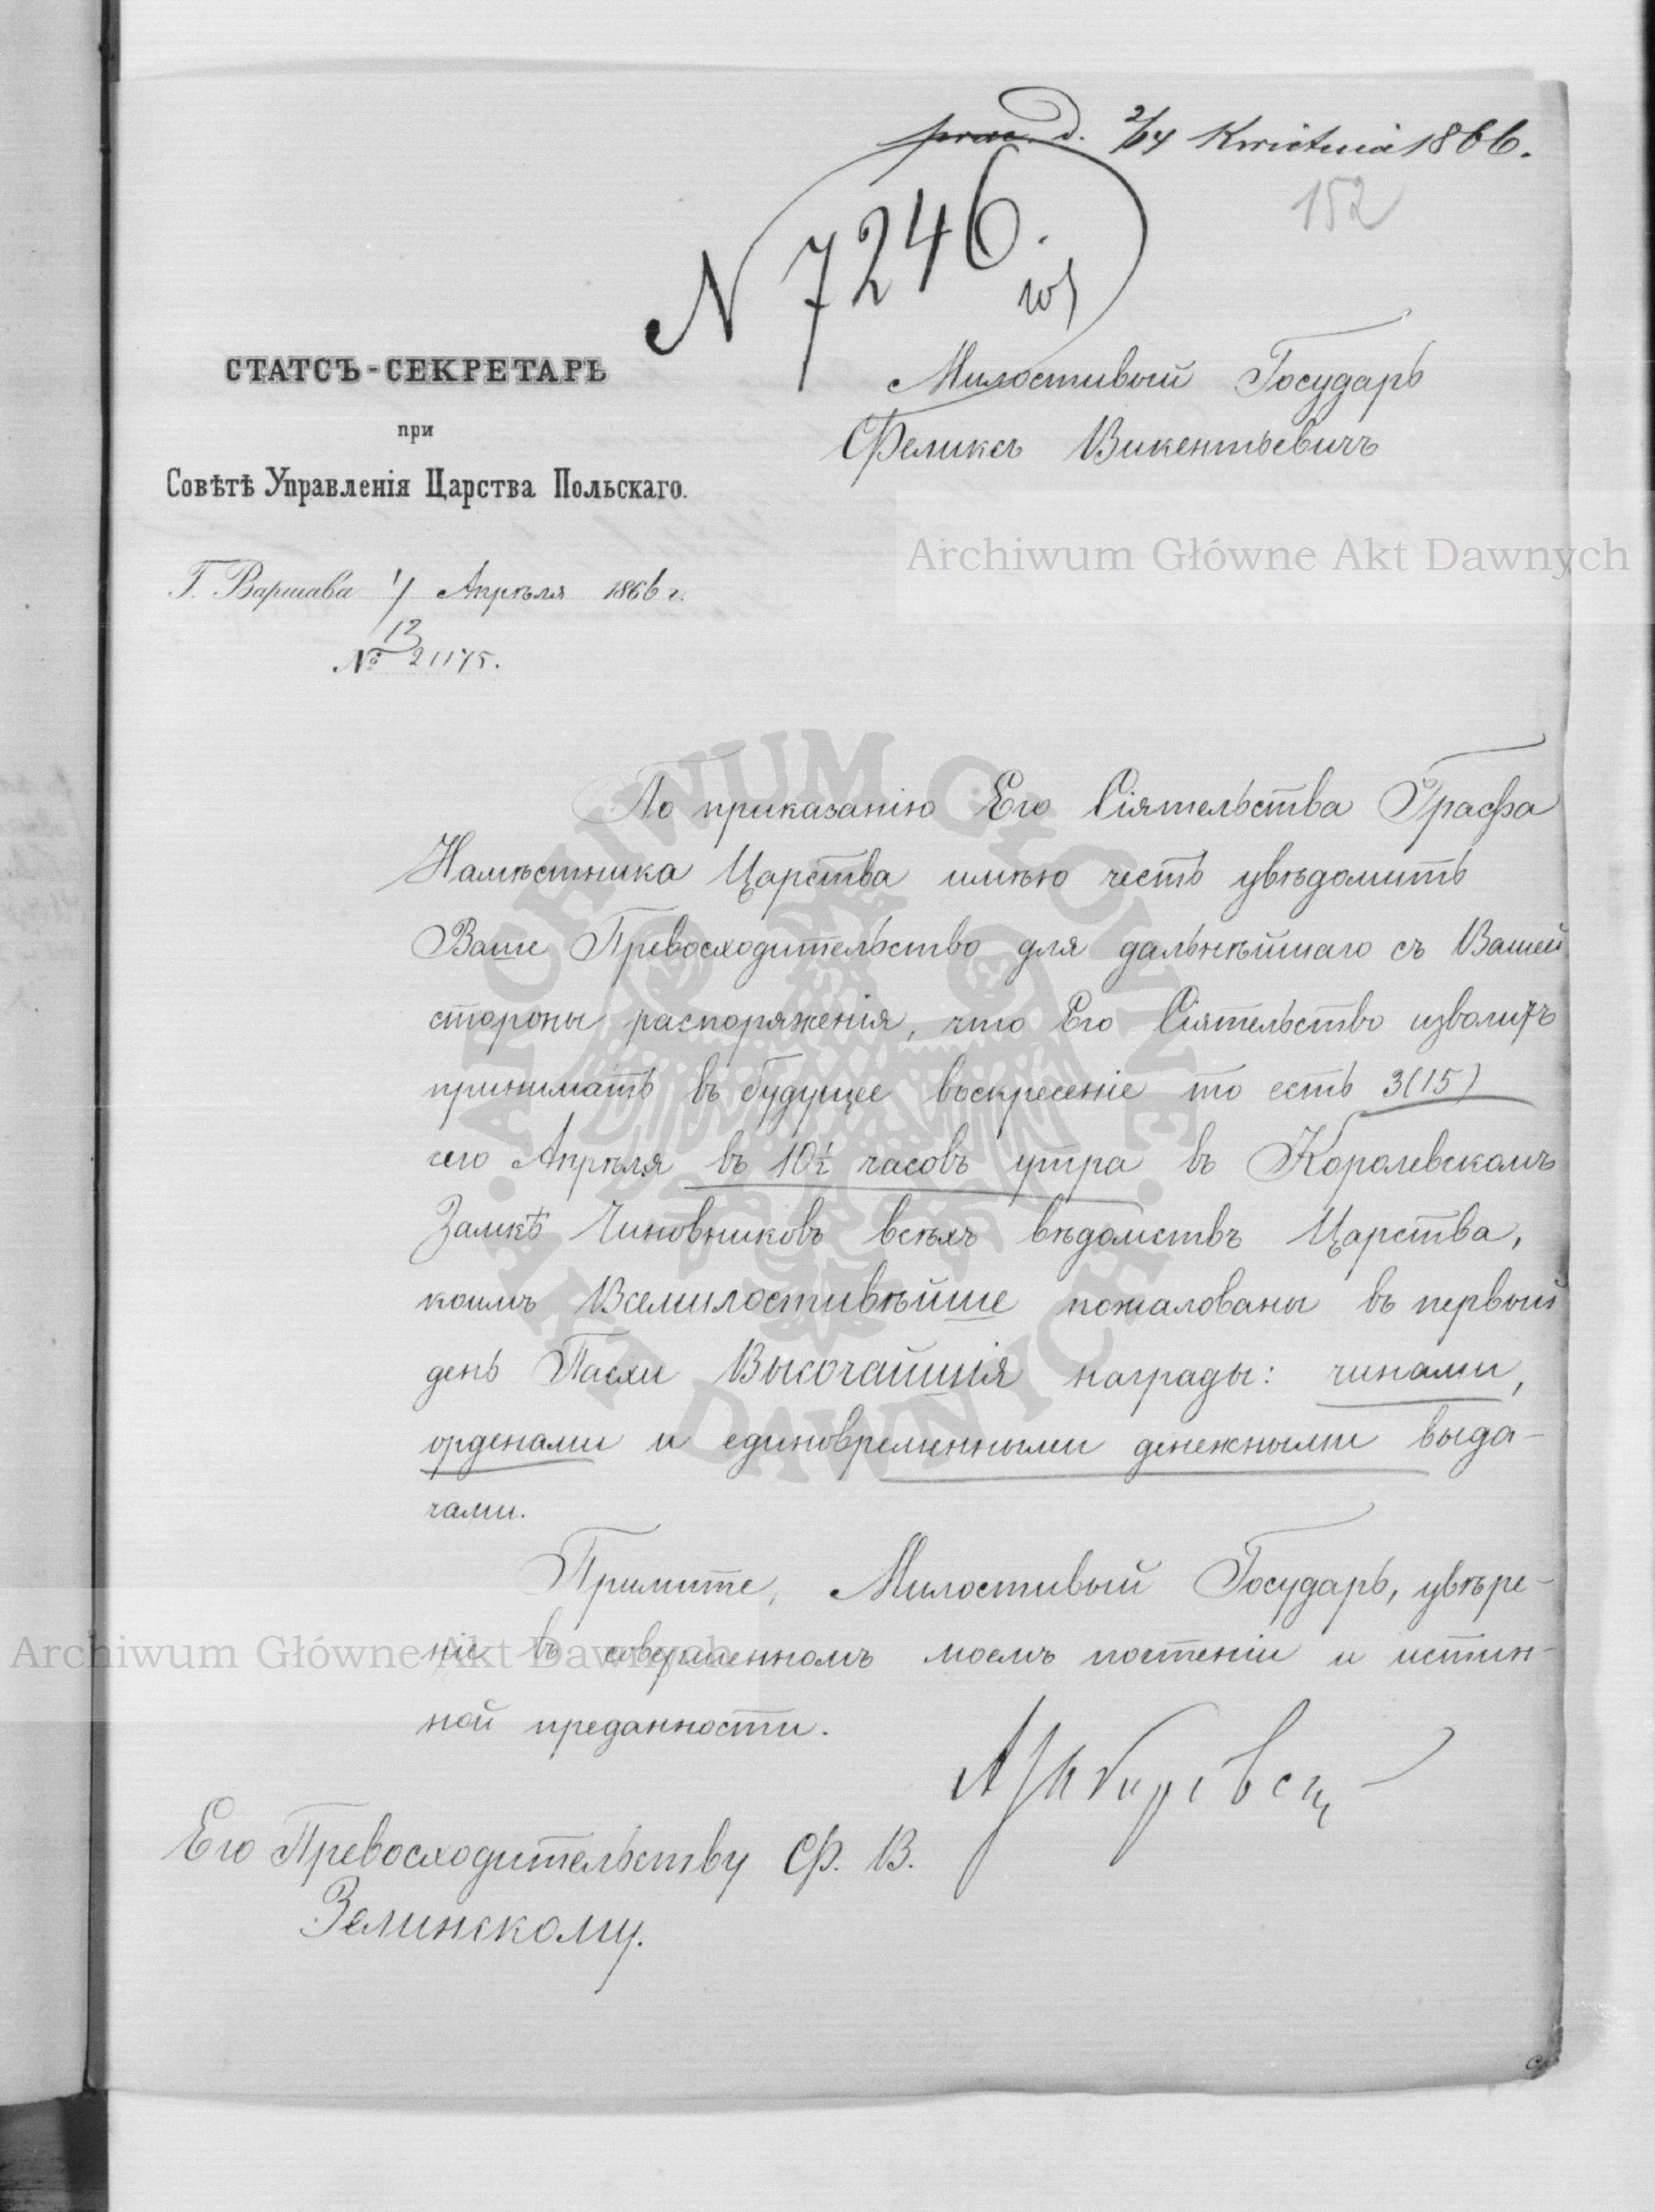 praes. d. 2/14 Kwietnia 1866.
152
N 7246.
СТАТСЪ-СЕКРЕТАРЬ
при
Совѣтѣ Управленія Царства Польскаго.
Г. Варшава 1/13 Апрѣля 1866 г.
№ 21175.
Милостивый Государь
Феликсъ Викентьевичъ
Archiwum Główne Akt Dawnych
По приказанію Его Сіятельства Графа
Намѣстника Царства имѣю честь увѣдомить
Ваше Превосходительство для дальнѣйшаго съ Вашей
стороны распоряженія, что Его Сіятельство изволитъ
принимать въ будущее воскресеніе то есть 3(15)
сего Апрѣля въ 10½ часовъ утра въ Королевскомъ
Замкѣ Чиновниковъ всѣхъ вѣдомствъ Царства,
коимъ Всемилостивѣйше пожалованы въ первый
день Пасхи Высочайшія награды: чинами,
орденами и единовременными денежными выда-
чами.
Примите, Милостивый Государь, увѣре-
ніе въ совершенномъ моемъ почтеніи и истин-
ной преданности.
Его Превосходительству Ф. В.
Зелинскому.
ARCHIWUM GŁÓWNE · AKT DAWNYCH ·
Archiwum Główne Akt Dawnych